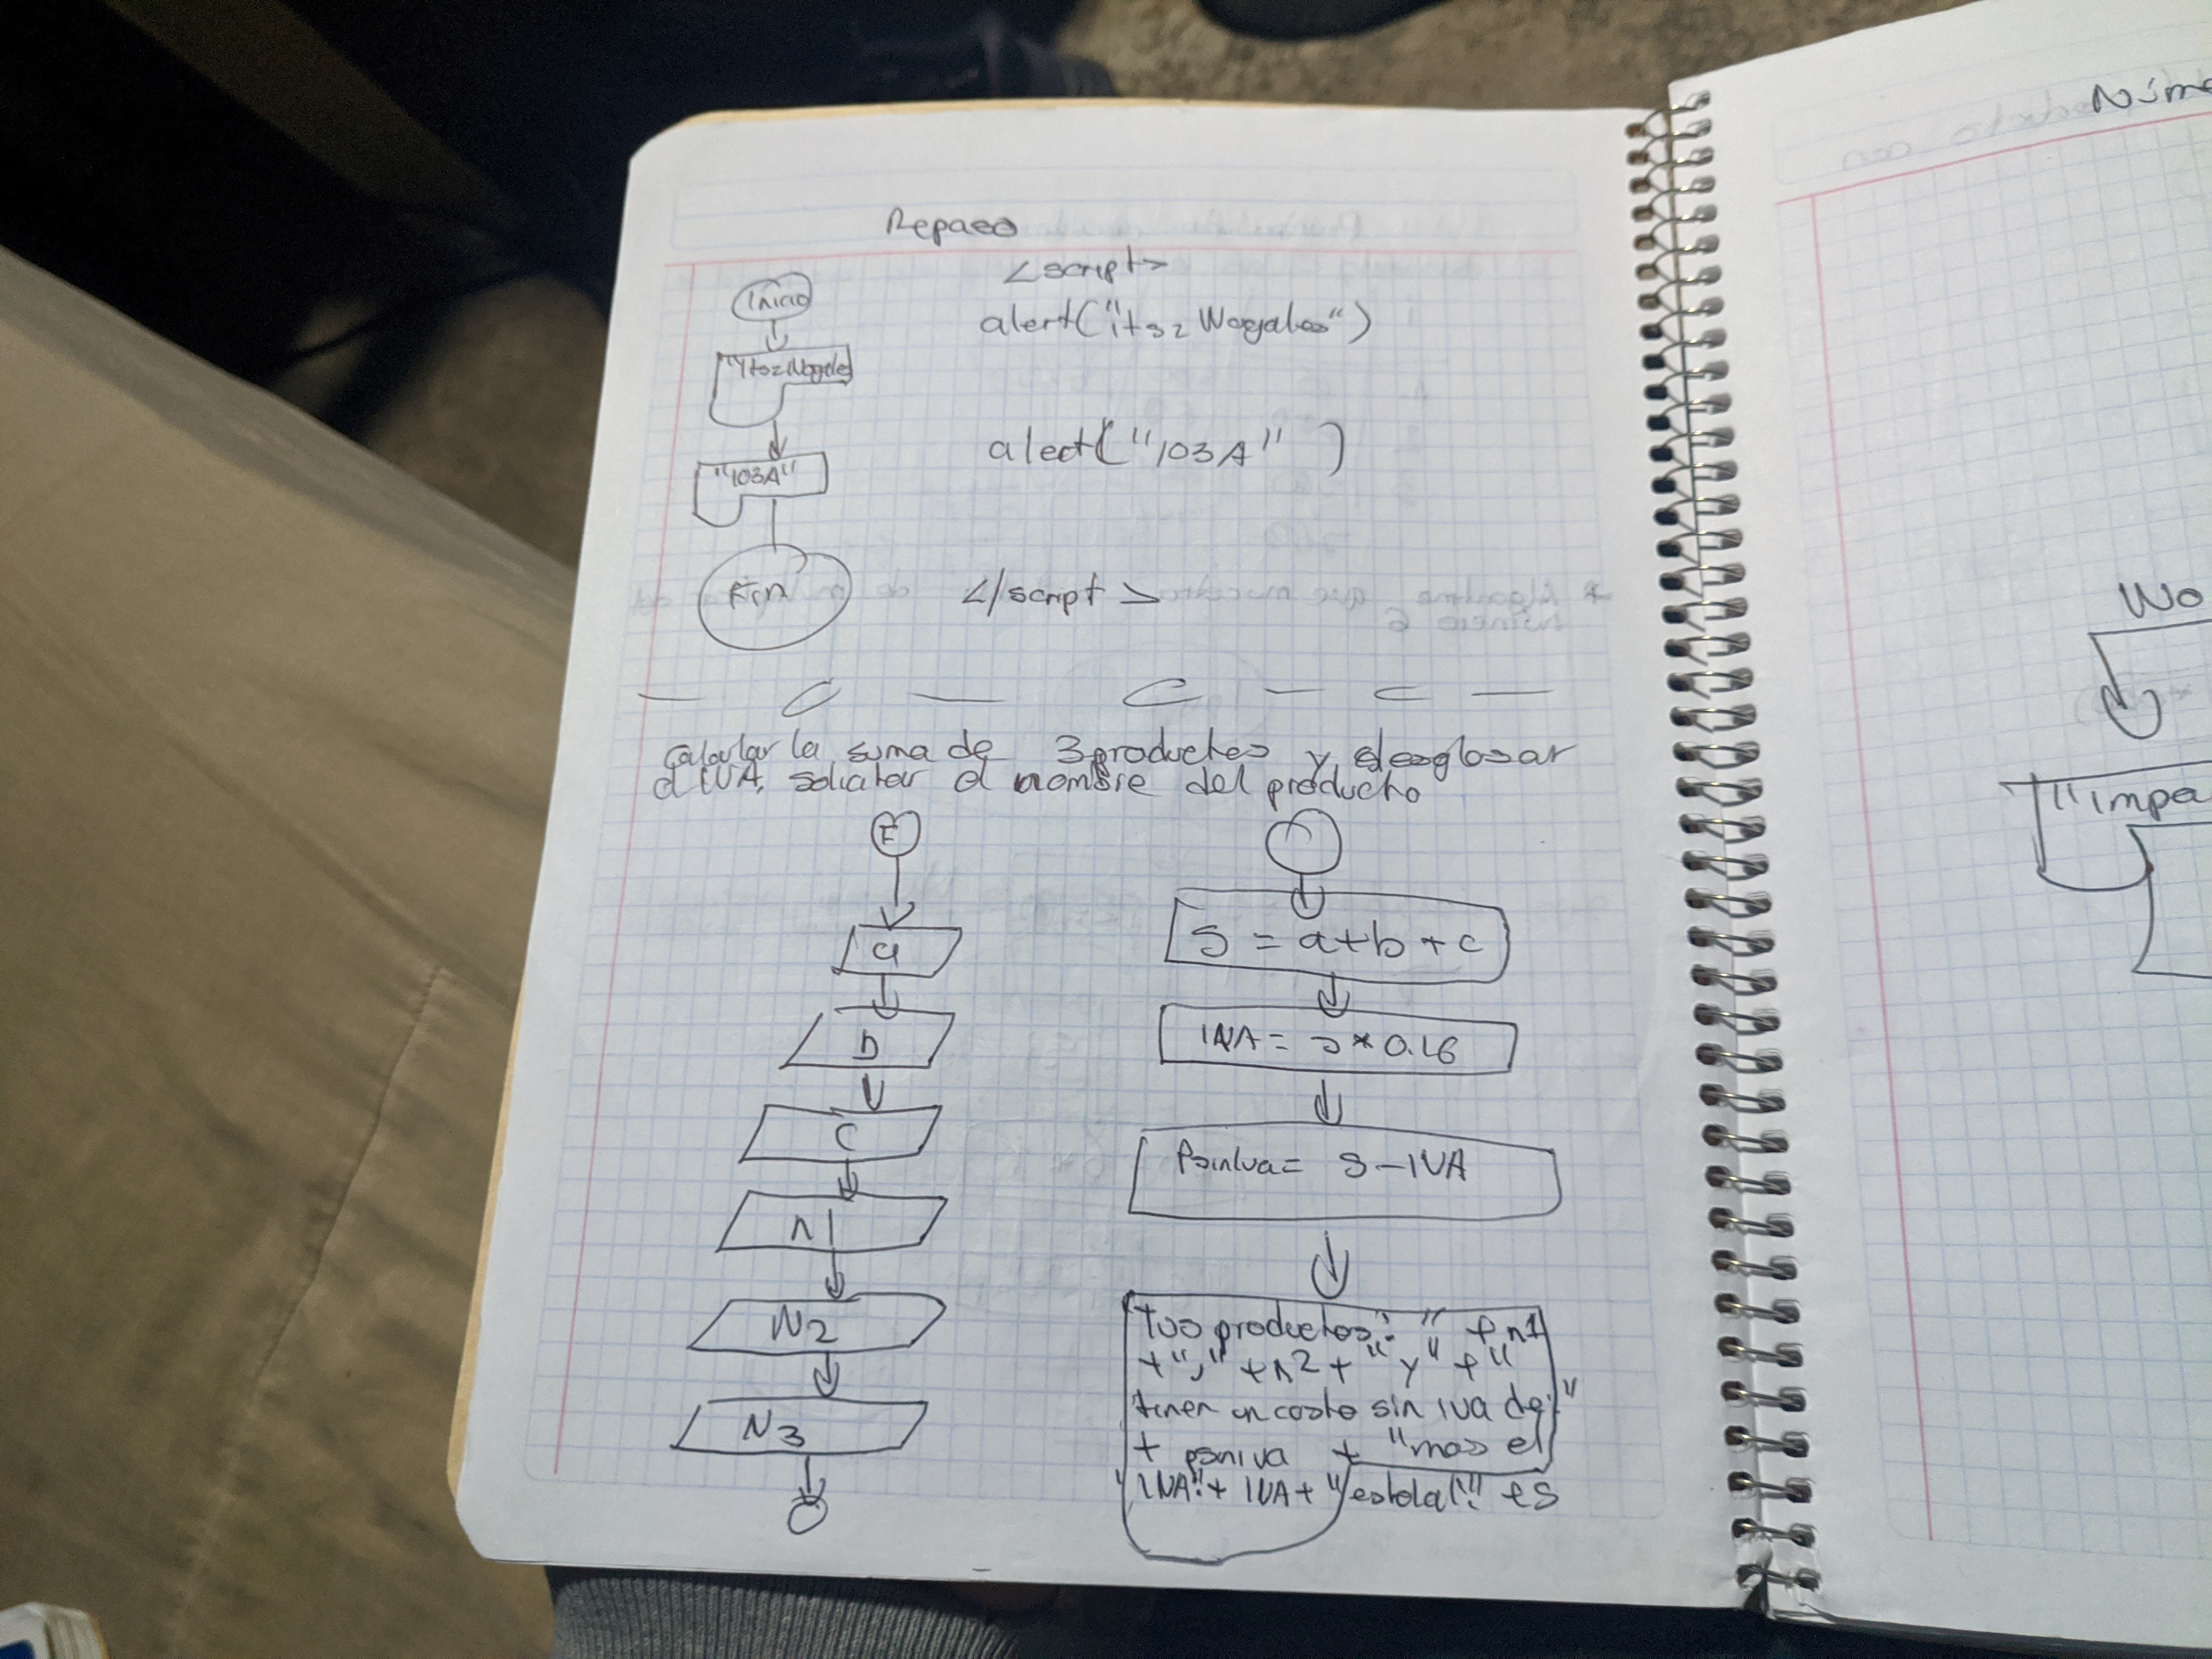 Repaso
<script>
Inicio
alert("itsz Nogales")
"Itsz Nogales"
alect("103A" )
"103A"
Fin
</script>
Calcular la suma de 3 productos y desglosar
el IVA, solicitar el nombre del producto
a
b
C
n1
N2
N3
S = a+b+c
IVA = s*0.16
Psiniva= S-IVA
tus productos: " + n1
+"," +n2+ " y" +"
tienen un costo sin iva de:"
+ psniva + "mas el
"IVA:"+ IVA+ "estotal:" es
Núme
No
"impa